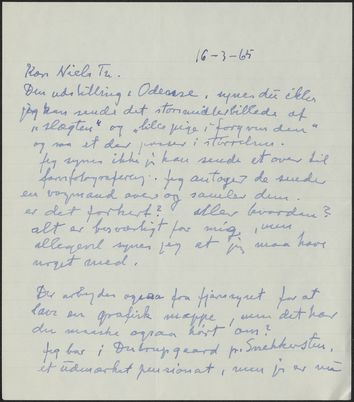 16-3-65
Kære Niels Th.
Den udstilling i Odense, synes du ikke
jeg kan sende det store midterbillede af
"slægten" og "lille pige i forgrunden"
og saa et der passer i størrelse.
Jeg synes ikke jeg kan sende et over til
farvefotografering. Jeg antager de sender
en vognmand over og samler dem.
er det forkert? eller hvordan?
alt er besværligt for mig, men
allegevel synes jeg at jeg maa have
noget med.
Der arbejdes ogsaa fra fjernsynet for at
lave en grafisk mappe, men det har
du maaske ogsaa hørt om?
Jeg bor i Dubrupgaard pr. Snekkersten,
et udmærket pensionat, men jeg er nu